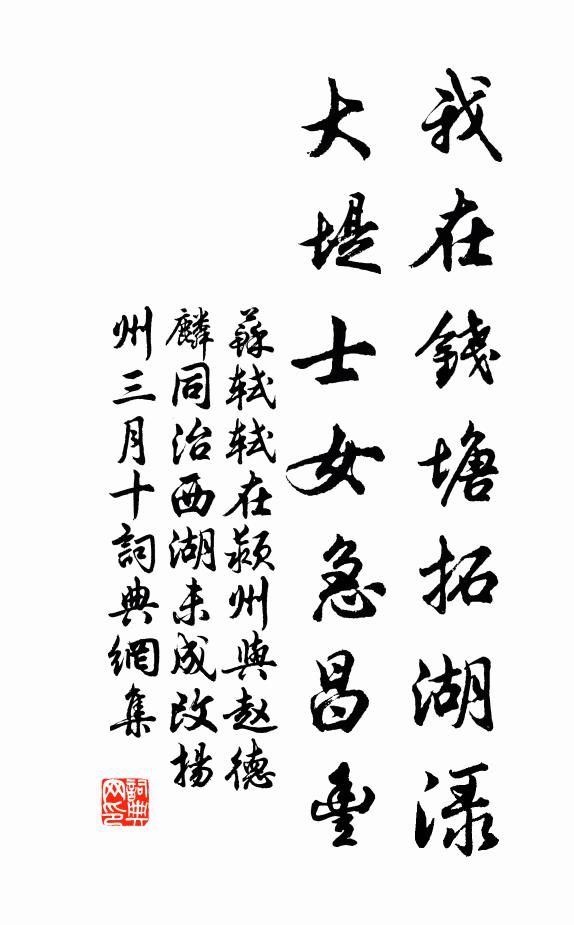 我在錢塘拓湖渌
大堤士女急昌豐
蘇軾軾在颍州與赵德
麟同治西湖未成改揚
州三月十詞典網集
詞典网印